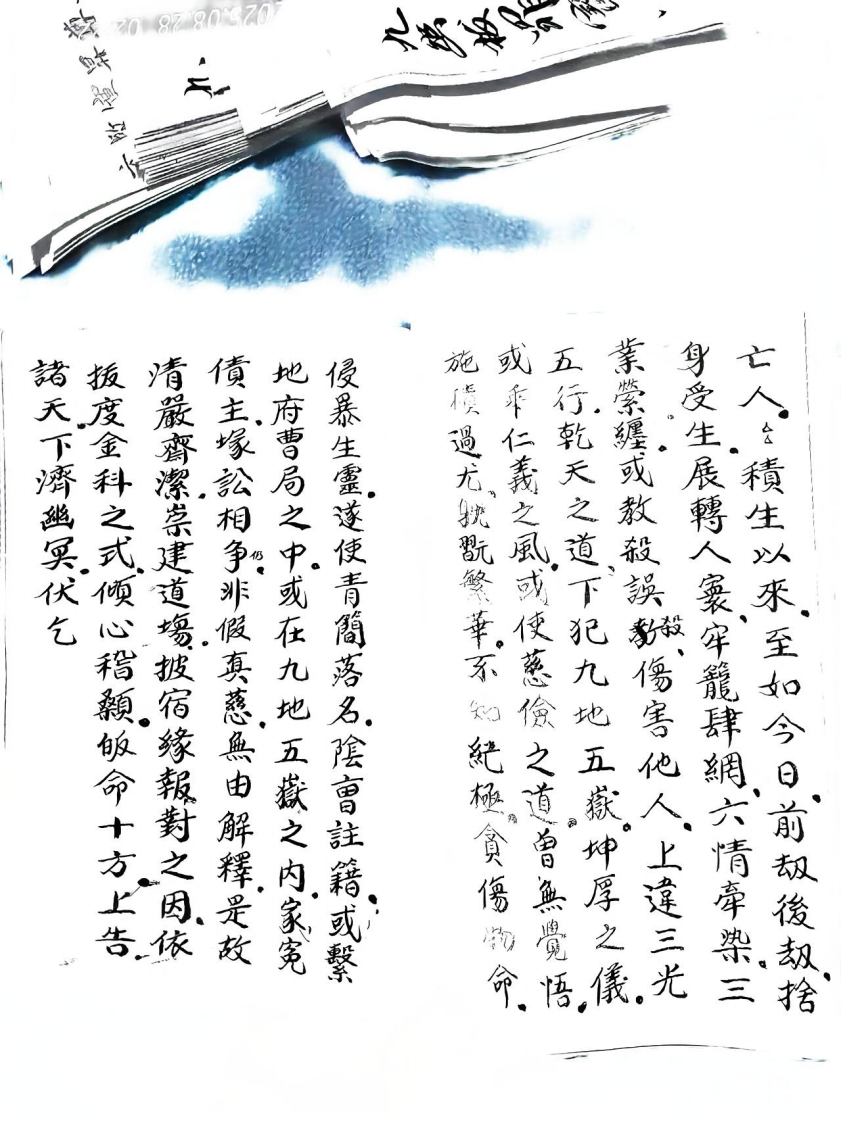 亡人。厶厶積生以來、至如今日、前劫後劫、捨
身受生、展轉人寰、牢籠肆網、六情牽染、三
業縈纏。或教殺誤殺、傷害他人、上違三光
五行、乾天之道、下犯九地五嶽、坤厚之儀。
或乖仁義之風、或使慈儉之道。曾無覺悟、
施積過尤、翫繁華、不知紀極。貪傷物命、
侵暴生靈。遂使青簡落名、陰曹註籍、或繫
地府曹局之中、或在九地五嶽之内、家冤
債主、塚訟相争、仍非假真慈、無由解釋。是故
清嚴齋潔、崇建道塲、披宿緣報對之因、依
拔度金科之式、傾心稽顙。皈命十方、上告
諸天、下濟幽冥、伏乞